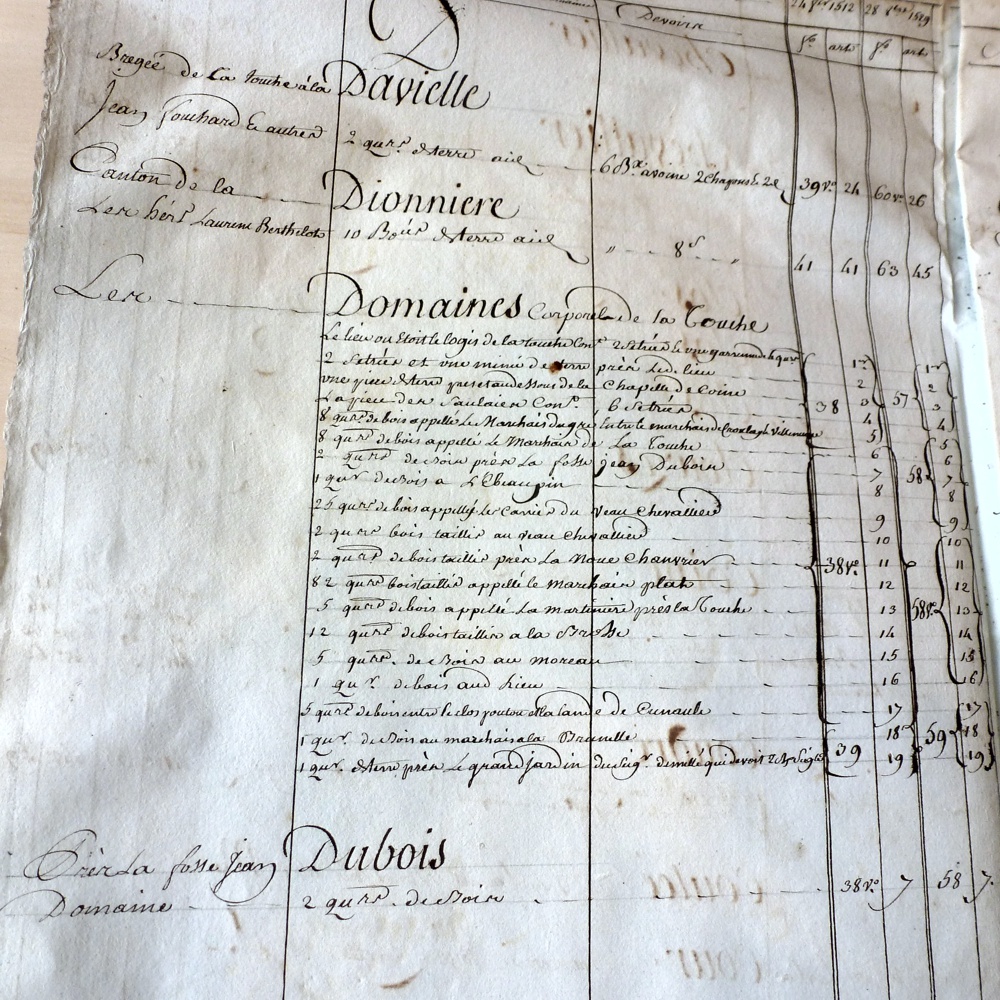 D
Devoirs
24 1512 28 1519
fo. art. fo. art.
Bregeé de La touche à la Davielle
Jean fouchard & autres 2 qu.rs de terre aud. 6 Bx avoine 2 Chapons & 39 v.o 24 60 v.o 26
Canton de la Dionniere
Les hérs Laurent Berthelot 10 de terre aud. " 8 s " 41 41 63 45
Les Domaines Corporels de la Touche
Le lieu ou étoit le logis de la touche Con.t
2 Setrées et une minée de terre près led. lieu 2
une piece de terre au dessous de la Chapelle de 38 3 57 3
La piece des Saulaies Con.t 6 Setrées 4 4
8 qu.rs de bois appellé Le Marchais du 5 5
8 qu.rs de bois appellé Le Marchais de La Touche 6 6
2 qu.rs de Bois près La fosse jean Dubois 7 58 7
1 qu.r de Bois a L'Ebaupin 8 8
25 qu.rs de bois appellé les du veau Chevallier 9 9
2 qu.rs bois taillis au veau Chevallier 10 10
2 qu.rs de bois taillis près La Noue Chanvrier 38 v.o 11 11
82 qu.rs bois taillis appellé le Marchais plat 12 12
5 qu.rs de bois appellé La martiniere près la Touche 13 58 v.o 13
12 qu.rs de bois taillis a la Brosse 14 14
5 qu.rs de Bois au moreau 15 15
1 qu.r de bois aud lieu 16 16
5 qu.rs de bois entre le clos poutou et la lande de Cunault 17 17
1 qu.r de Bois au marchais a la 18 59 18
1 qu.r de terre près Le grand jardin du Seig.r qui devoit 39 19 19
Près La fosse Jean Dubois
Domaine 2 qu.rs de Bois 38 v.o 7 58 7